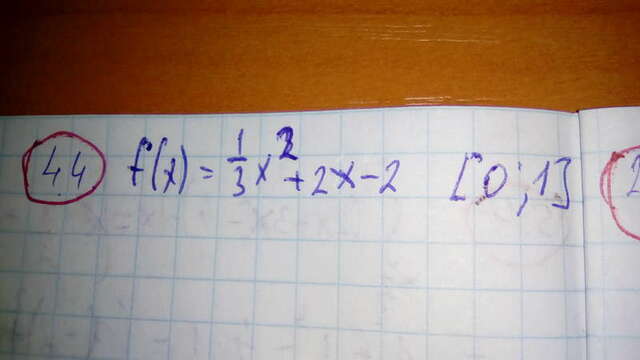 44 f(x) = 1/3 x² + 2x - 2 [0; 1]